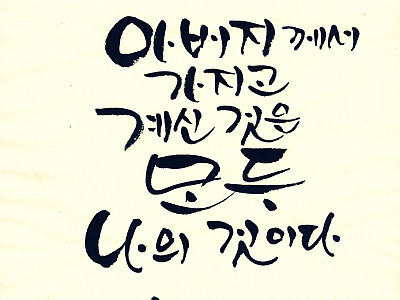 아버지께서
가지고
계신 것은
모두
나의 것이다.